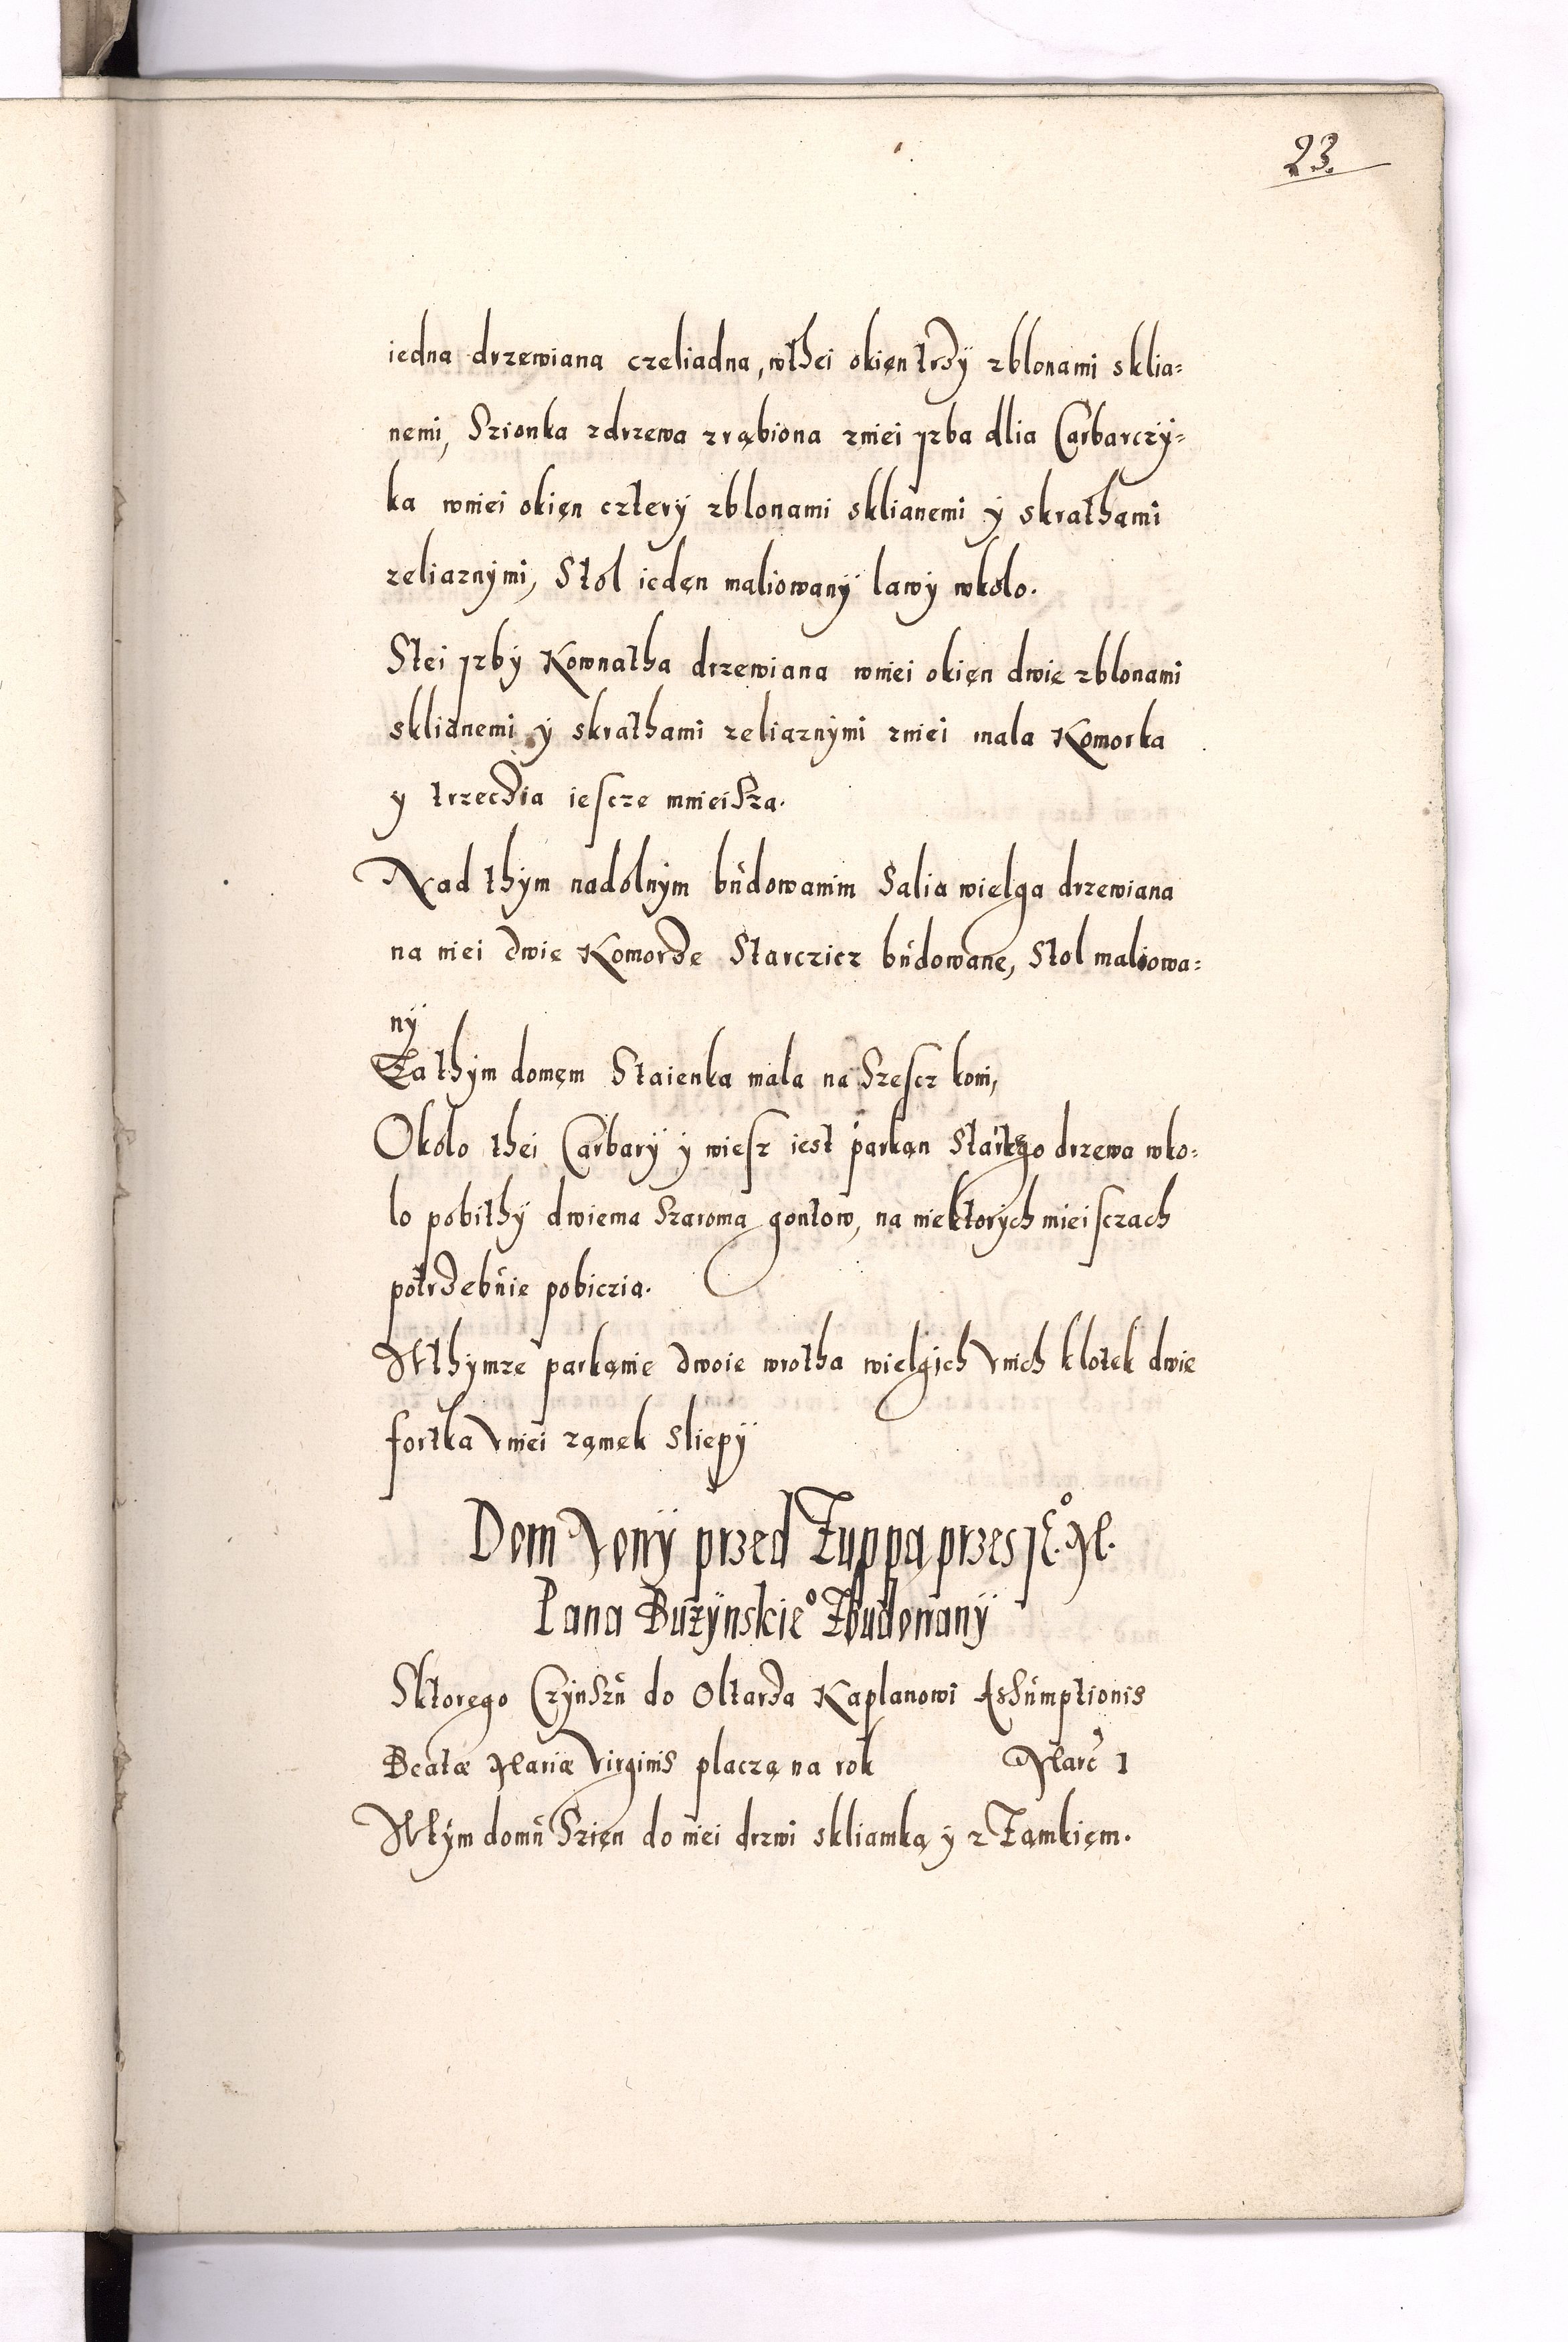 23.
iedna drzewiana czeliadna, wthei okięn trzÿ zblonami sklia=
nemi, Szionka zdrzewa zrąbiona zniei yzba dlia Carbarczÿ=
ka wniei okięn czterÿ zblonami sklianemi ÿ skrathami
zeliaznÿmi, Stol iedęn maliowanÿ lawÿ wkolo.
Stei yzbÿ Kownatha drzewiana wniei okięn dwie zblonami
sklianemi ÿ skrathami zeliaznÿmi zniei mala Komorka
y trzeczia iescze mnieisza.
Nad thÿm nadolnÿm budowanim Salia wielga drzewiana
na niei dwie Komorze Starczicz budowane, Stol maliowa=
nÿ
Za thÿm domęm Staienka mala na Szescz koni,
Okolo thei Carbarÿ ÿ wiesz iest parkan Startego drzewa wko=
lo pobithÿ dwiema Szaroma gontow, na niektorÿch mieisczach
potrzebuie pobiczia.
Wthÿmze parkanie dwoie wrotha wielgich Vnich klotek dwie
fortka Vniei zamęk sliepÿ
Dom Nowÿ przed Zuppą przes Je° M.
Pana Buzÿnskie° Zbudowanÿ
Sktorego Czÿnszu do Oltarza Kaplanowi Assumptionis
Beatæ Mariæ Virginis placzą na rok Marc 1
Wtÿm domu Szięn do niei drzwi skliamką ÿ z Zamkięm.